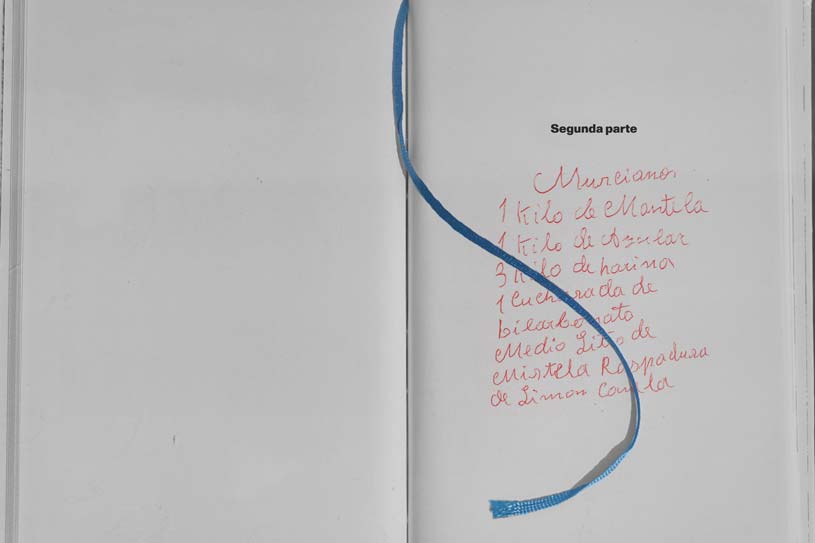 Segunda parte
Murcianos
1 Kilo de Mantela
1 Kilo de Azucar
3 Kilo de harina
1 Cucharada de
bicarbonato
Medio Litro de
Mistela Raspadura
de Limon Canela